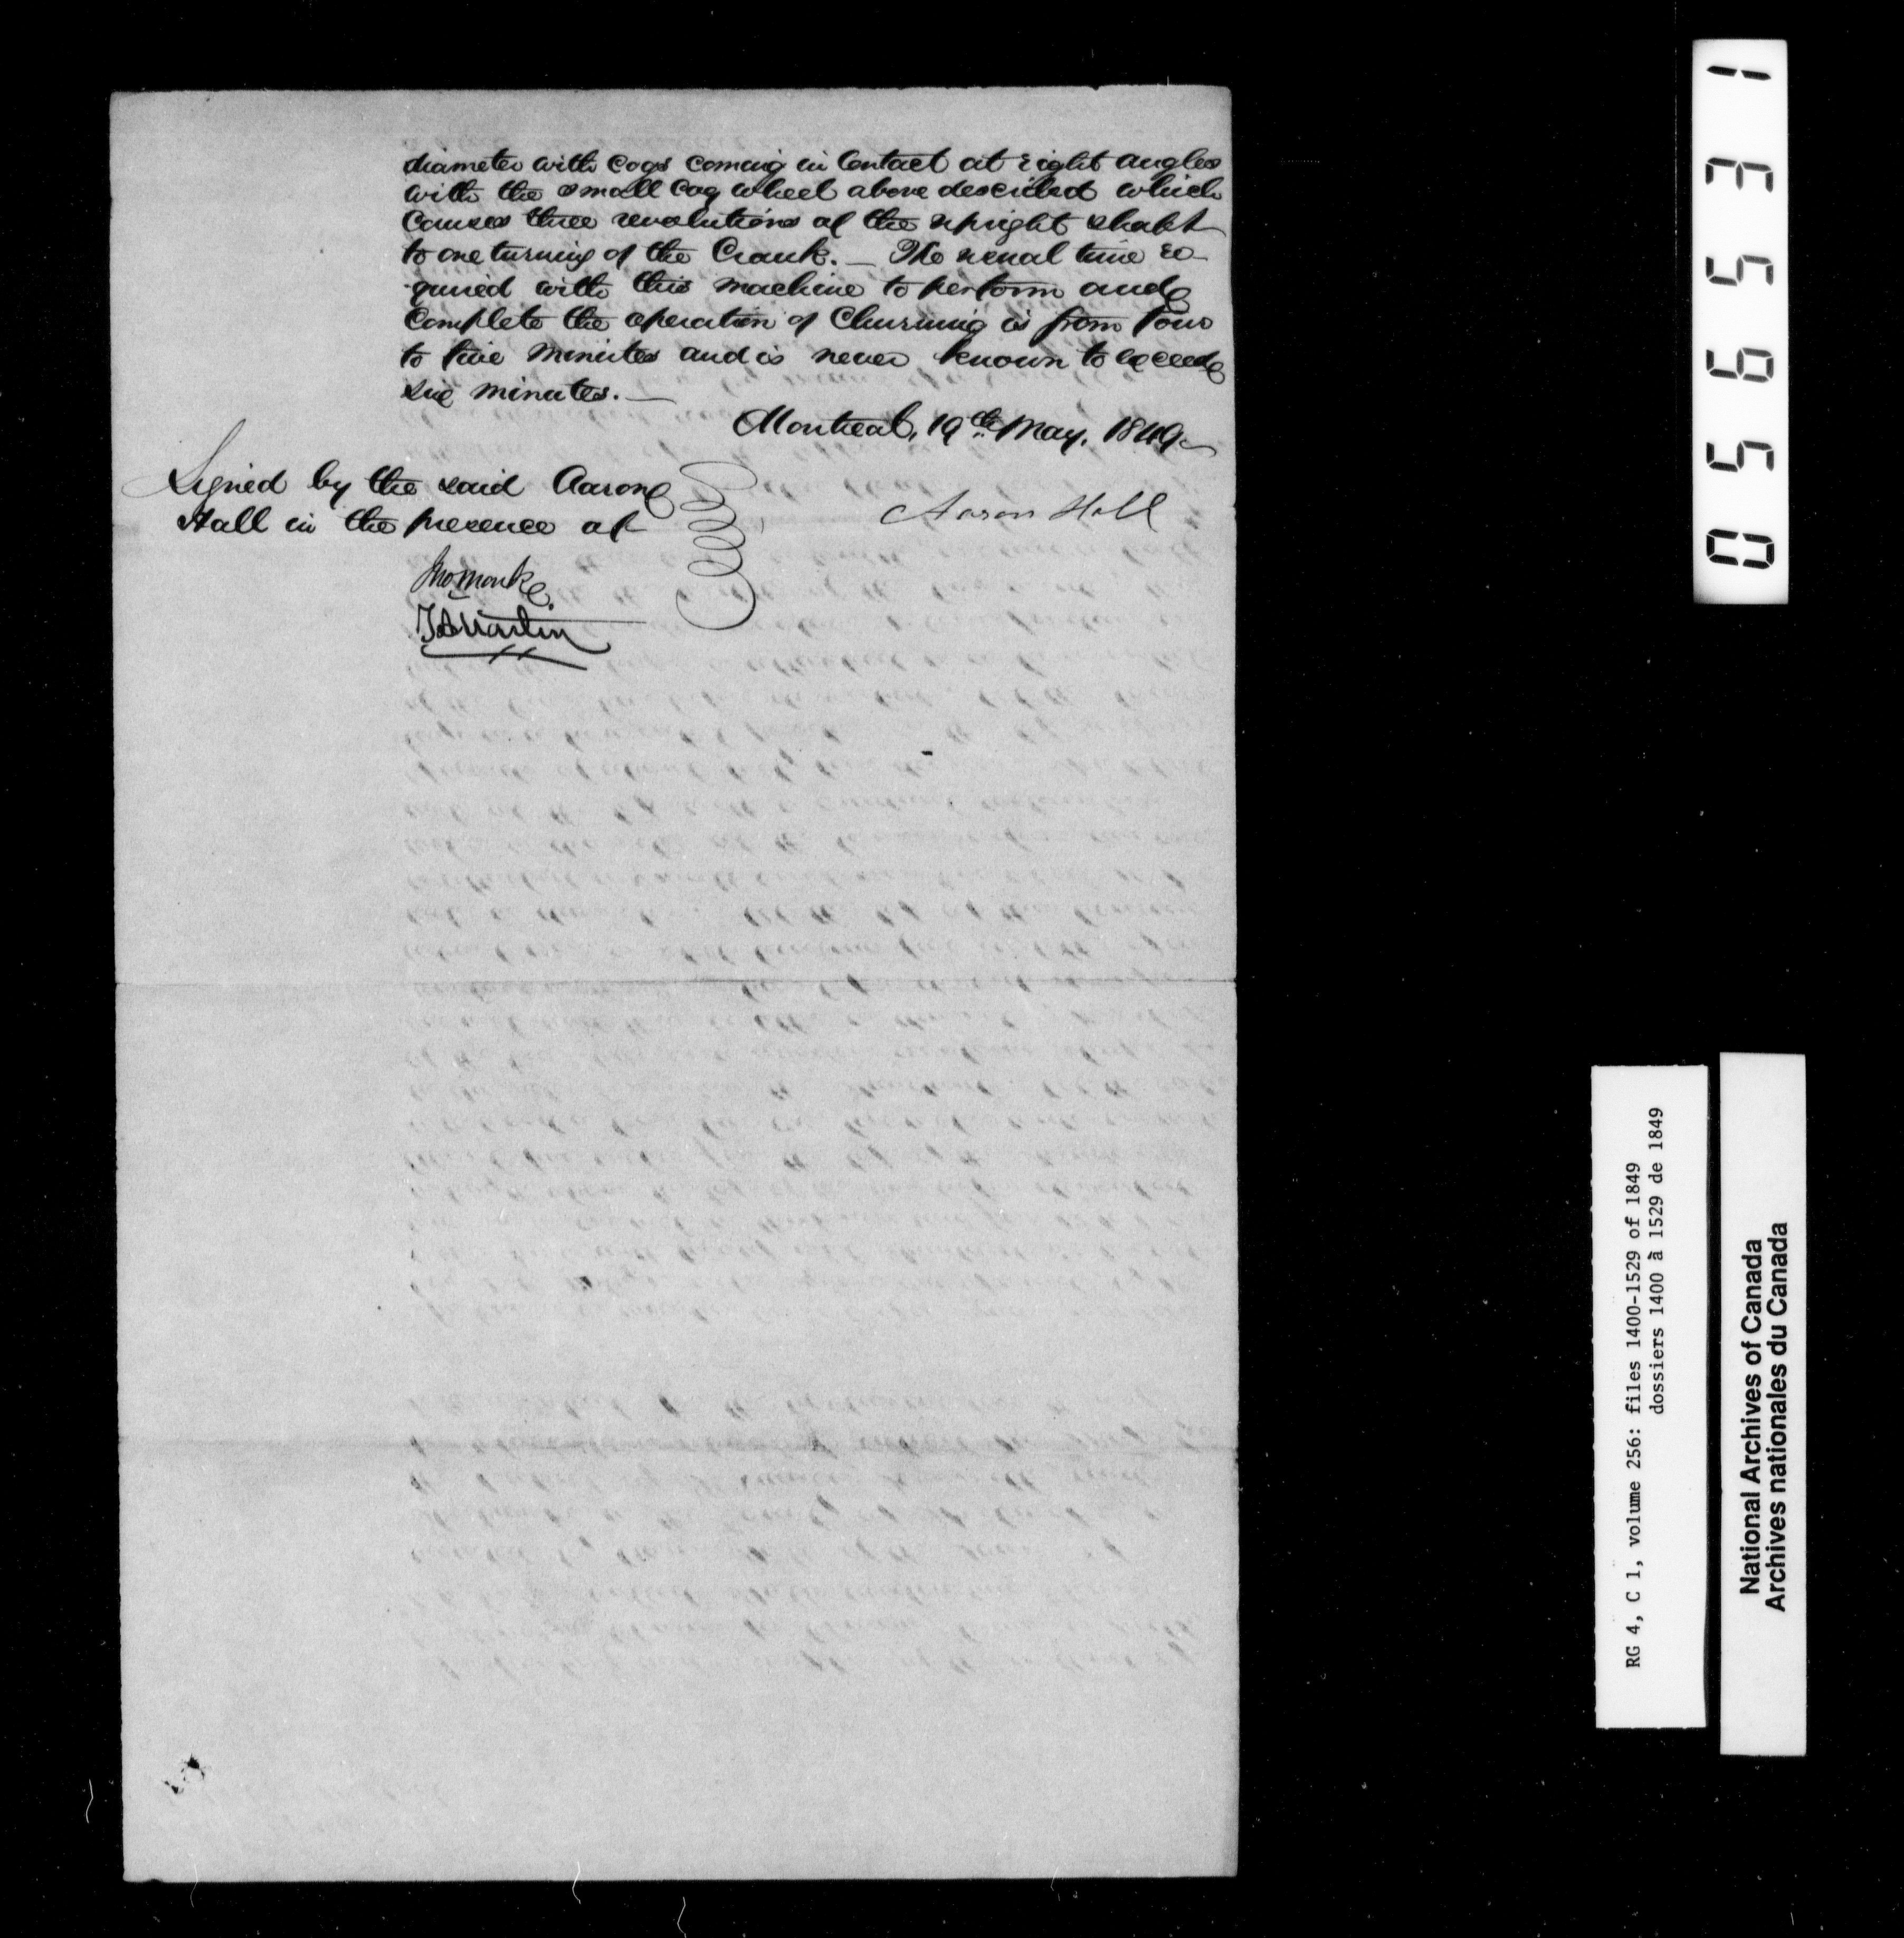 diameter with Cogs coming in Contact at right angles
with the small Cog wheel above described which
Causes three revolutions of the upright shaft
to one turning of the Crank. — The usual time re-
quired with this machine to perform and
Complete the operation of Churning is from four
to five minutes and is never known to exceed
six minutes. —
Montreal, 19th May. 1849.
Signed by the said Aaron
Hall in the presence of
Aaron Hall
Jno Monk
Martin
055631
RG 4, C 1, volume 256: files 1400-1529 of 1849
dossiers 1400 à 1529 de 1849
National Archives of Canada
Archives nationales du Canada